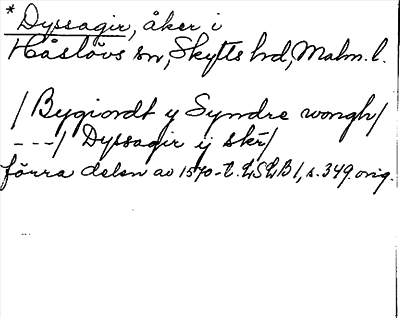 * Dyssagir, åker i
Håslövs sn, Skytts hd, Malm. l.
/ Bygiordt y Syndre wongh /
- - - / Dyssagir ij skr /
förra delen av 1570-t. LSLB 1, s. 349. orig.